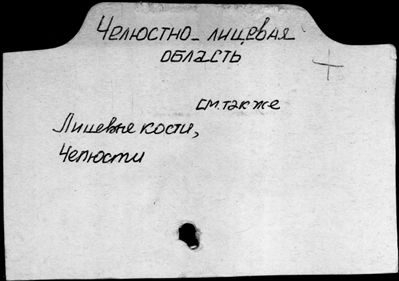 Челюстно-лицевая
область
см. также
Лицевые кости,
Челюсти